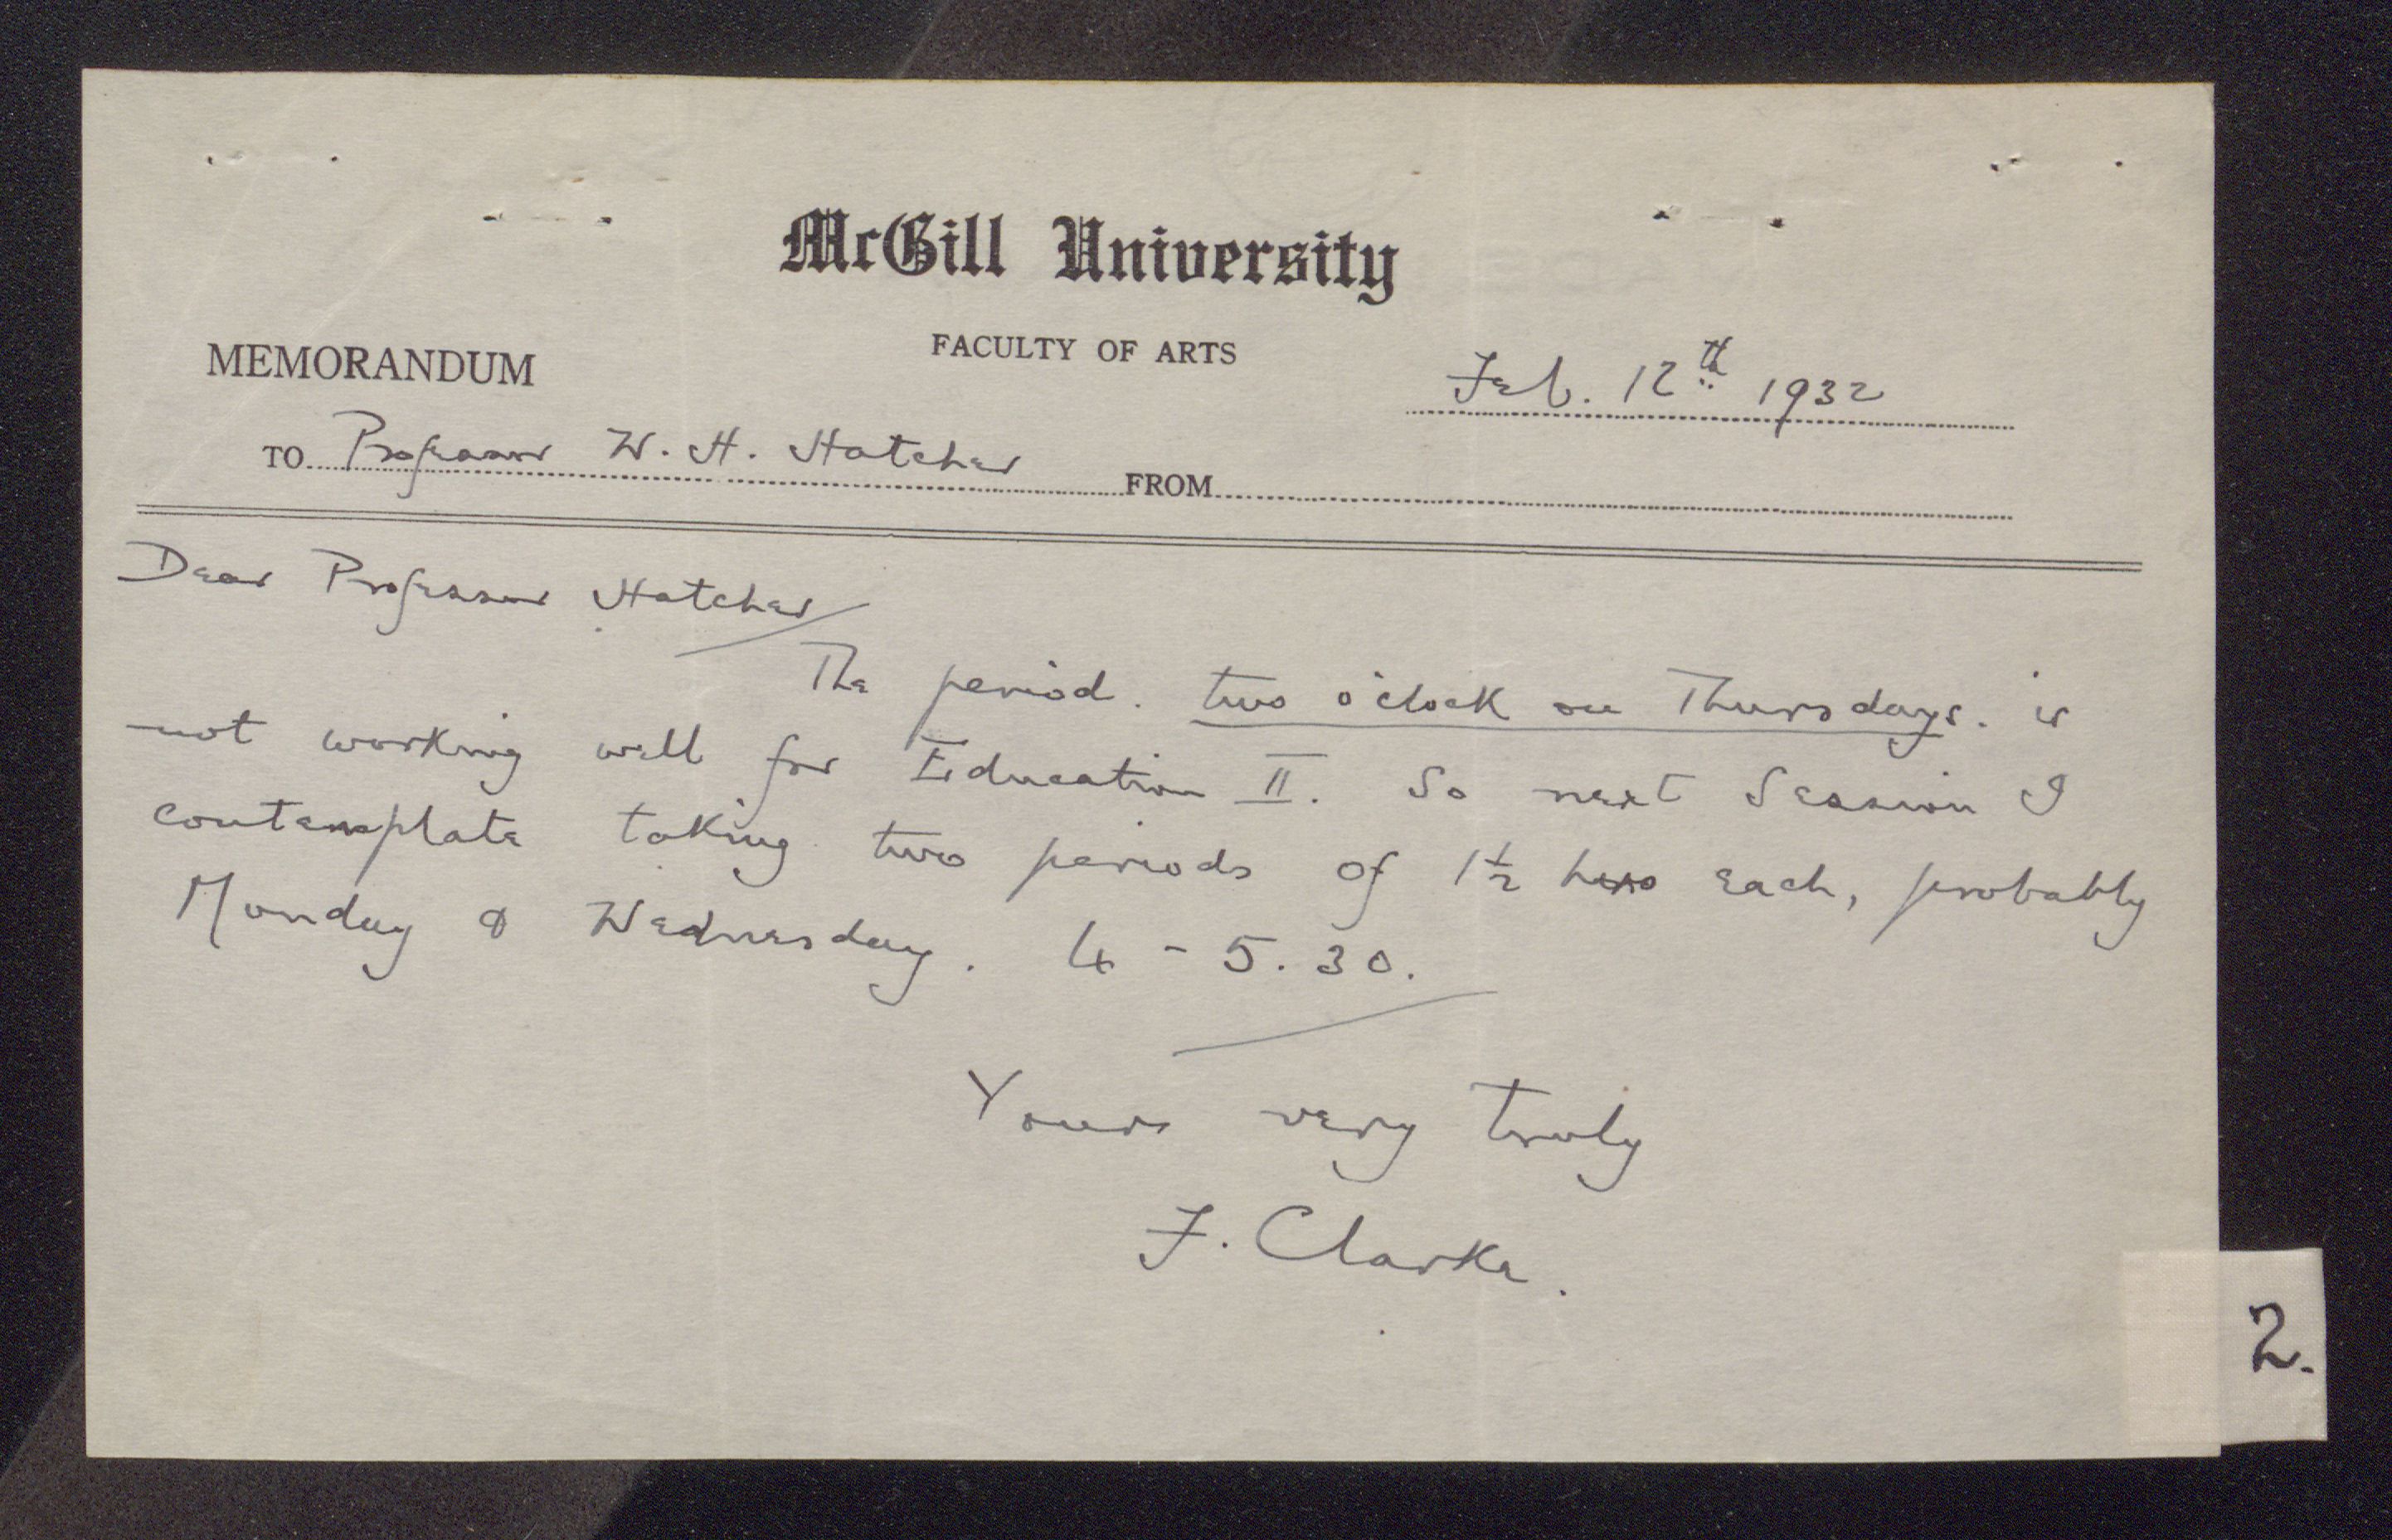 McGill University
FACULTY OF ARTS
MEMORANDUM
Feb. 12th 1932
TO Professor W. H. Hatcher FROM
Dear Professor Hatcher
The period. two o'clock on Thursdays. is
not working well for Education II. So next Session I
contemplate taking two periods of 1½ hrs each, probably
Monday & Wednesday. 4 - 5.30.
Yours very truly
F. Clarke.
2.